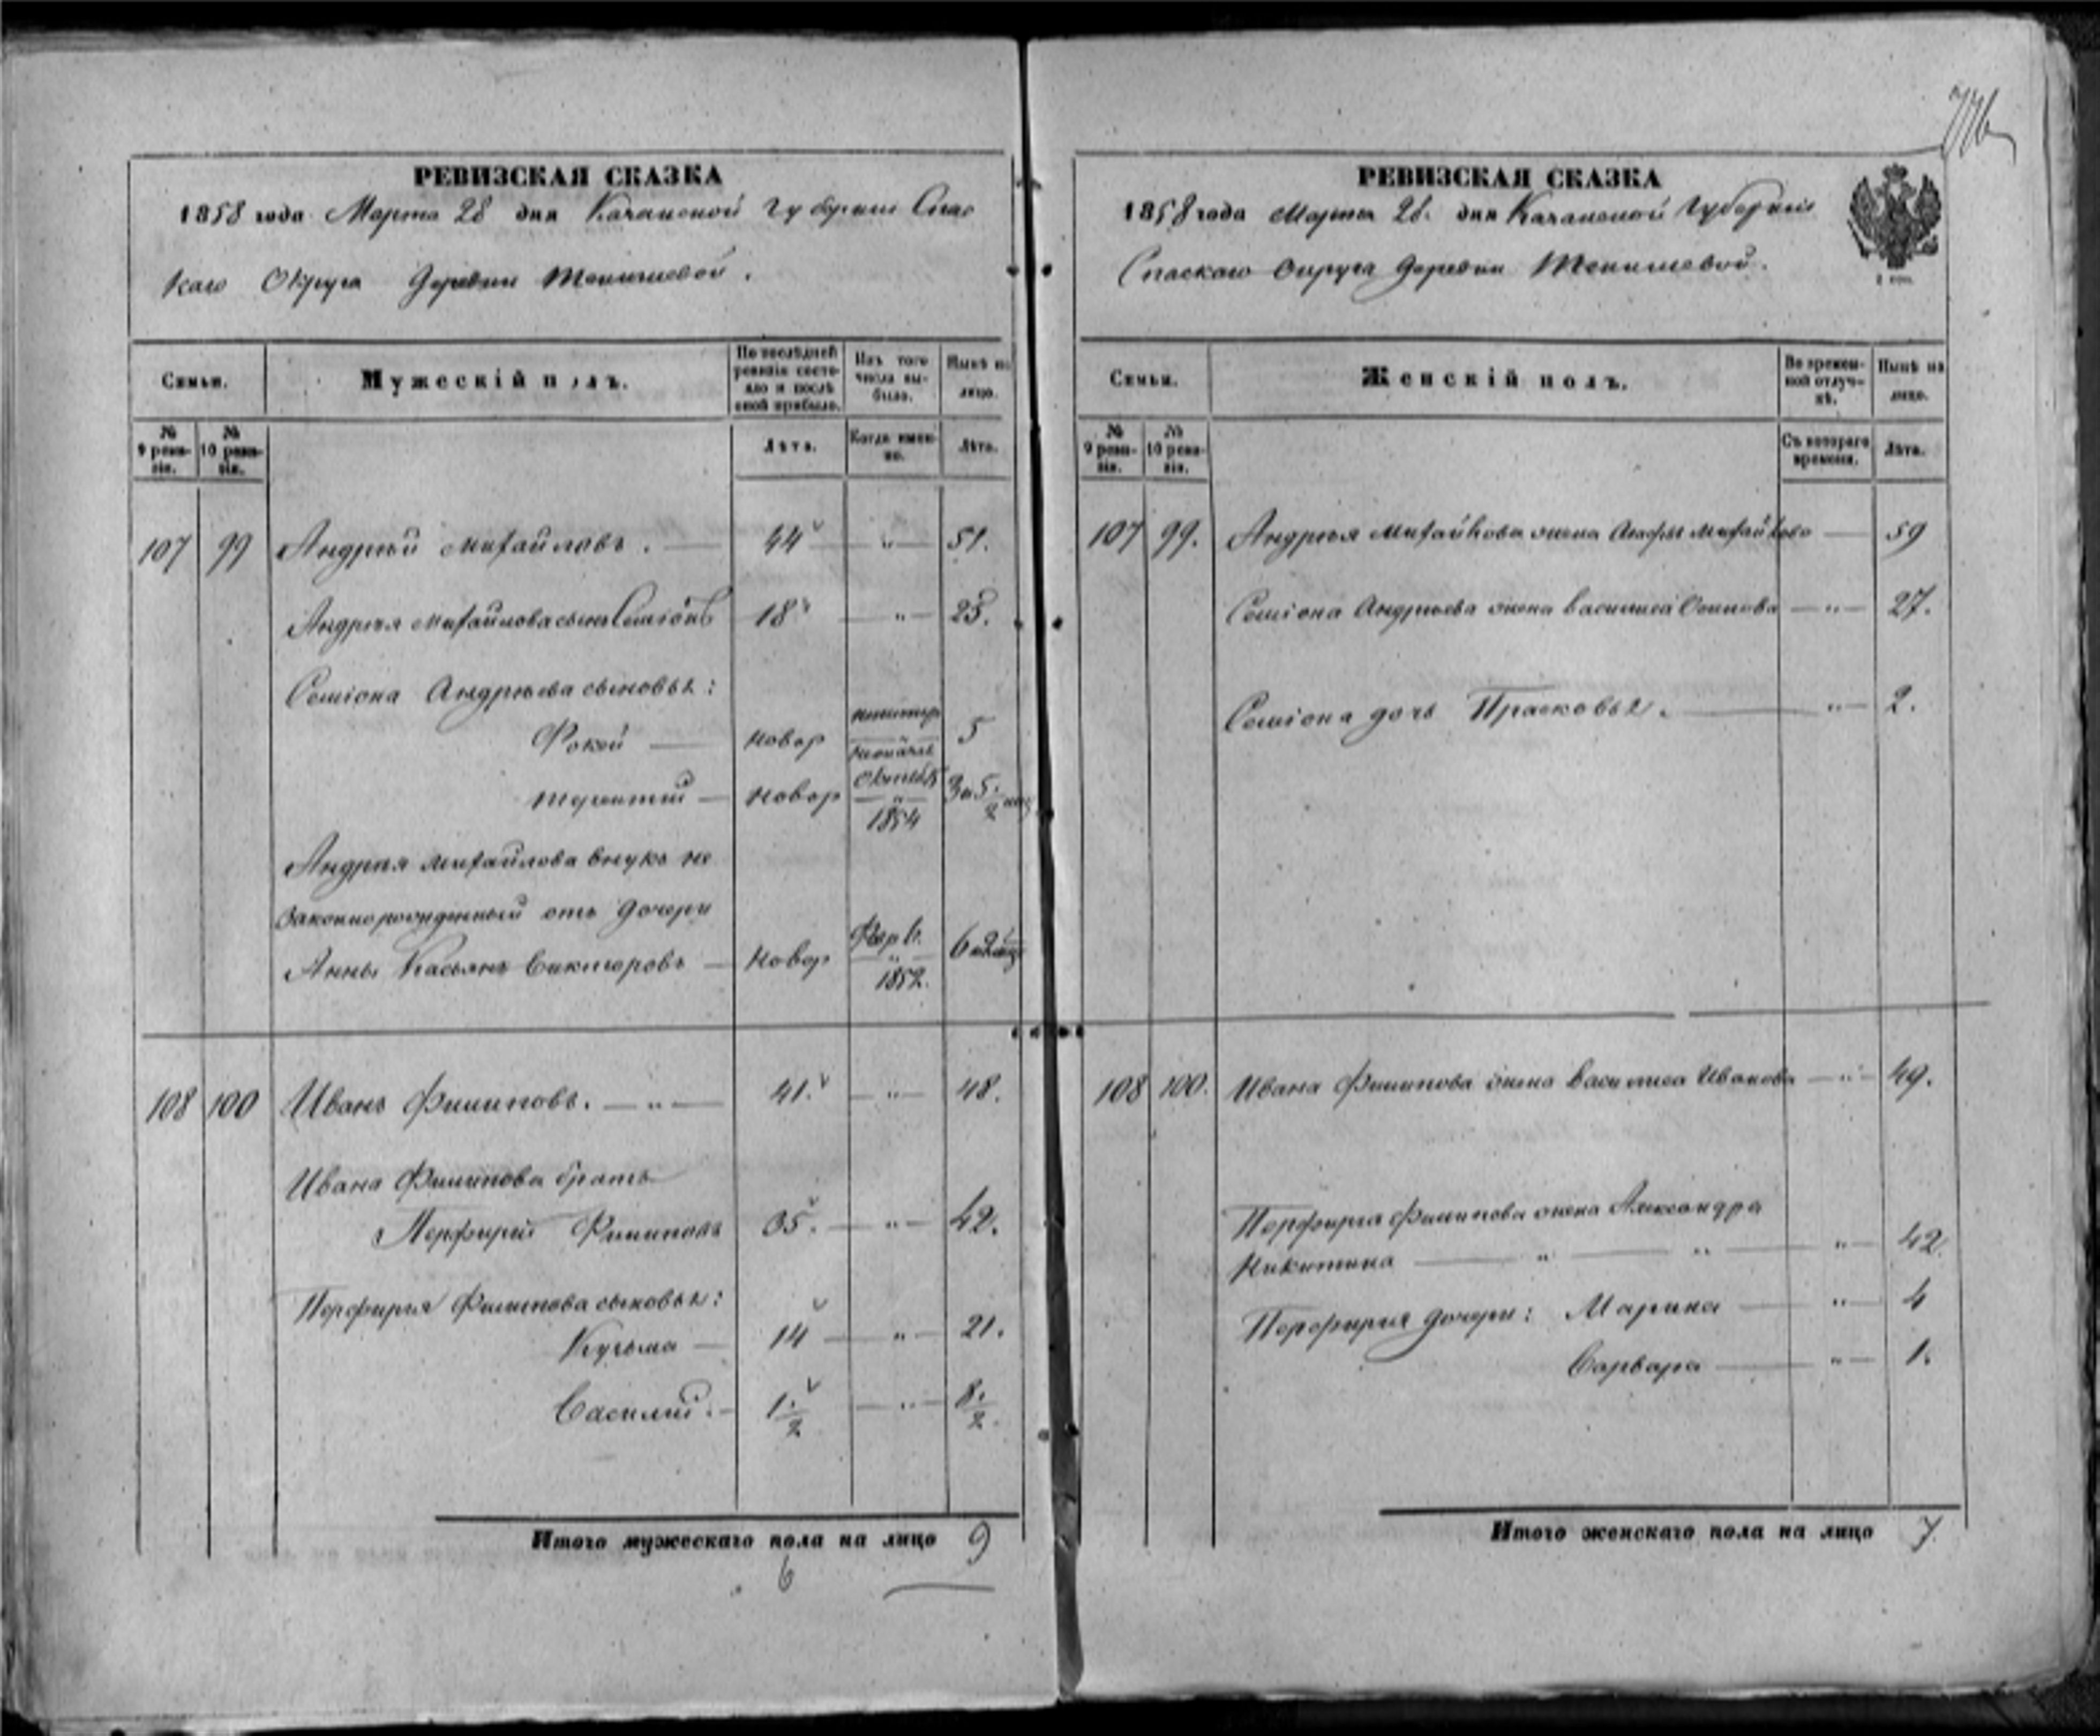 776
РЕВИЗСКАЯ СКАЗКА
1858 года Марта 28 дня Казанской Губернии Спас
каго Округа Деревни Тенишевой.
Семьи.
Мужескій полъ.
По послѣдней ревизіи состояло и послѣ оной прибыло.
Изъ того числа выбыло.
Нынѣ на лицо.
№ 9 ревизіи.
№ 10 ревизіи.
Лѣта.
Когда именно.
Лѣта.
107 99 Андрей Михайловъ. 44 „ 51.
Андрея Михайлова сынъ Семіонъ 18 „ 25.
Семіона Андреева сыновья:
Фокей новор 5
новор Октября 1854 3 и 5 мѣс
Андрея Михайлова внукъ не
законнорожденный отъ дочери
Анны Касьянъ Викторовъ новор Февр. 1852. 6
108 100 Иванъ Филиповъ. „ 41. „ 48.
Ивана Филипова братъ
Перфирій Филиповъ 35. „ 42.
Перфирія Филипова сыновья:
Кузьма 14 „ 21.
Василій. 1 1/2 „ 8 1/2.
Итого мужескаго пола на лицо 9
6
РЕВИЗСКАЯ СКАЗКА
1858 года Марта 28. дня Казанской Губерніи
Спаскаго Округа Деревни Тенишевой.
Семьи.
Женскій полъ.
Во временной отлучкѣ.
Нынѣ на лицо.
№ 9 ревизіи.
№ 10 ревизіи.
Съ котораго времени.
Лѣта.
107 99. Андрея Михайлова жена Агафья Михайлова 59
Семіона Андреева жена Василиса Осипова „ 27.
Семіона дочь Прасковья. „ 2.
108 100. Ивана Филипова жена Василиса Иванова „ 49.
Перфирія Филипова жена Александра
Никитина „ „ „ 42.
Перфирія дочери: Марина „ 4
Варвара „ 1.
Итого женскаго пола на лицо 7.